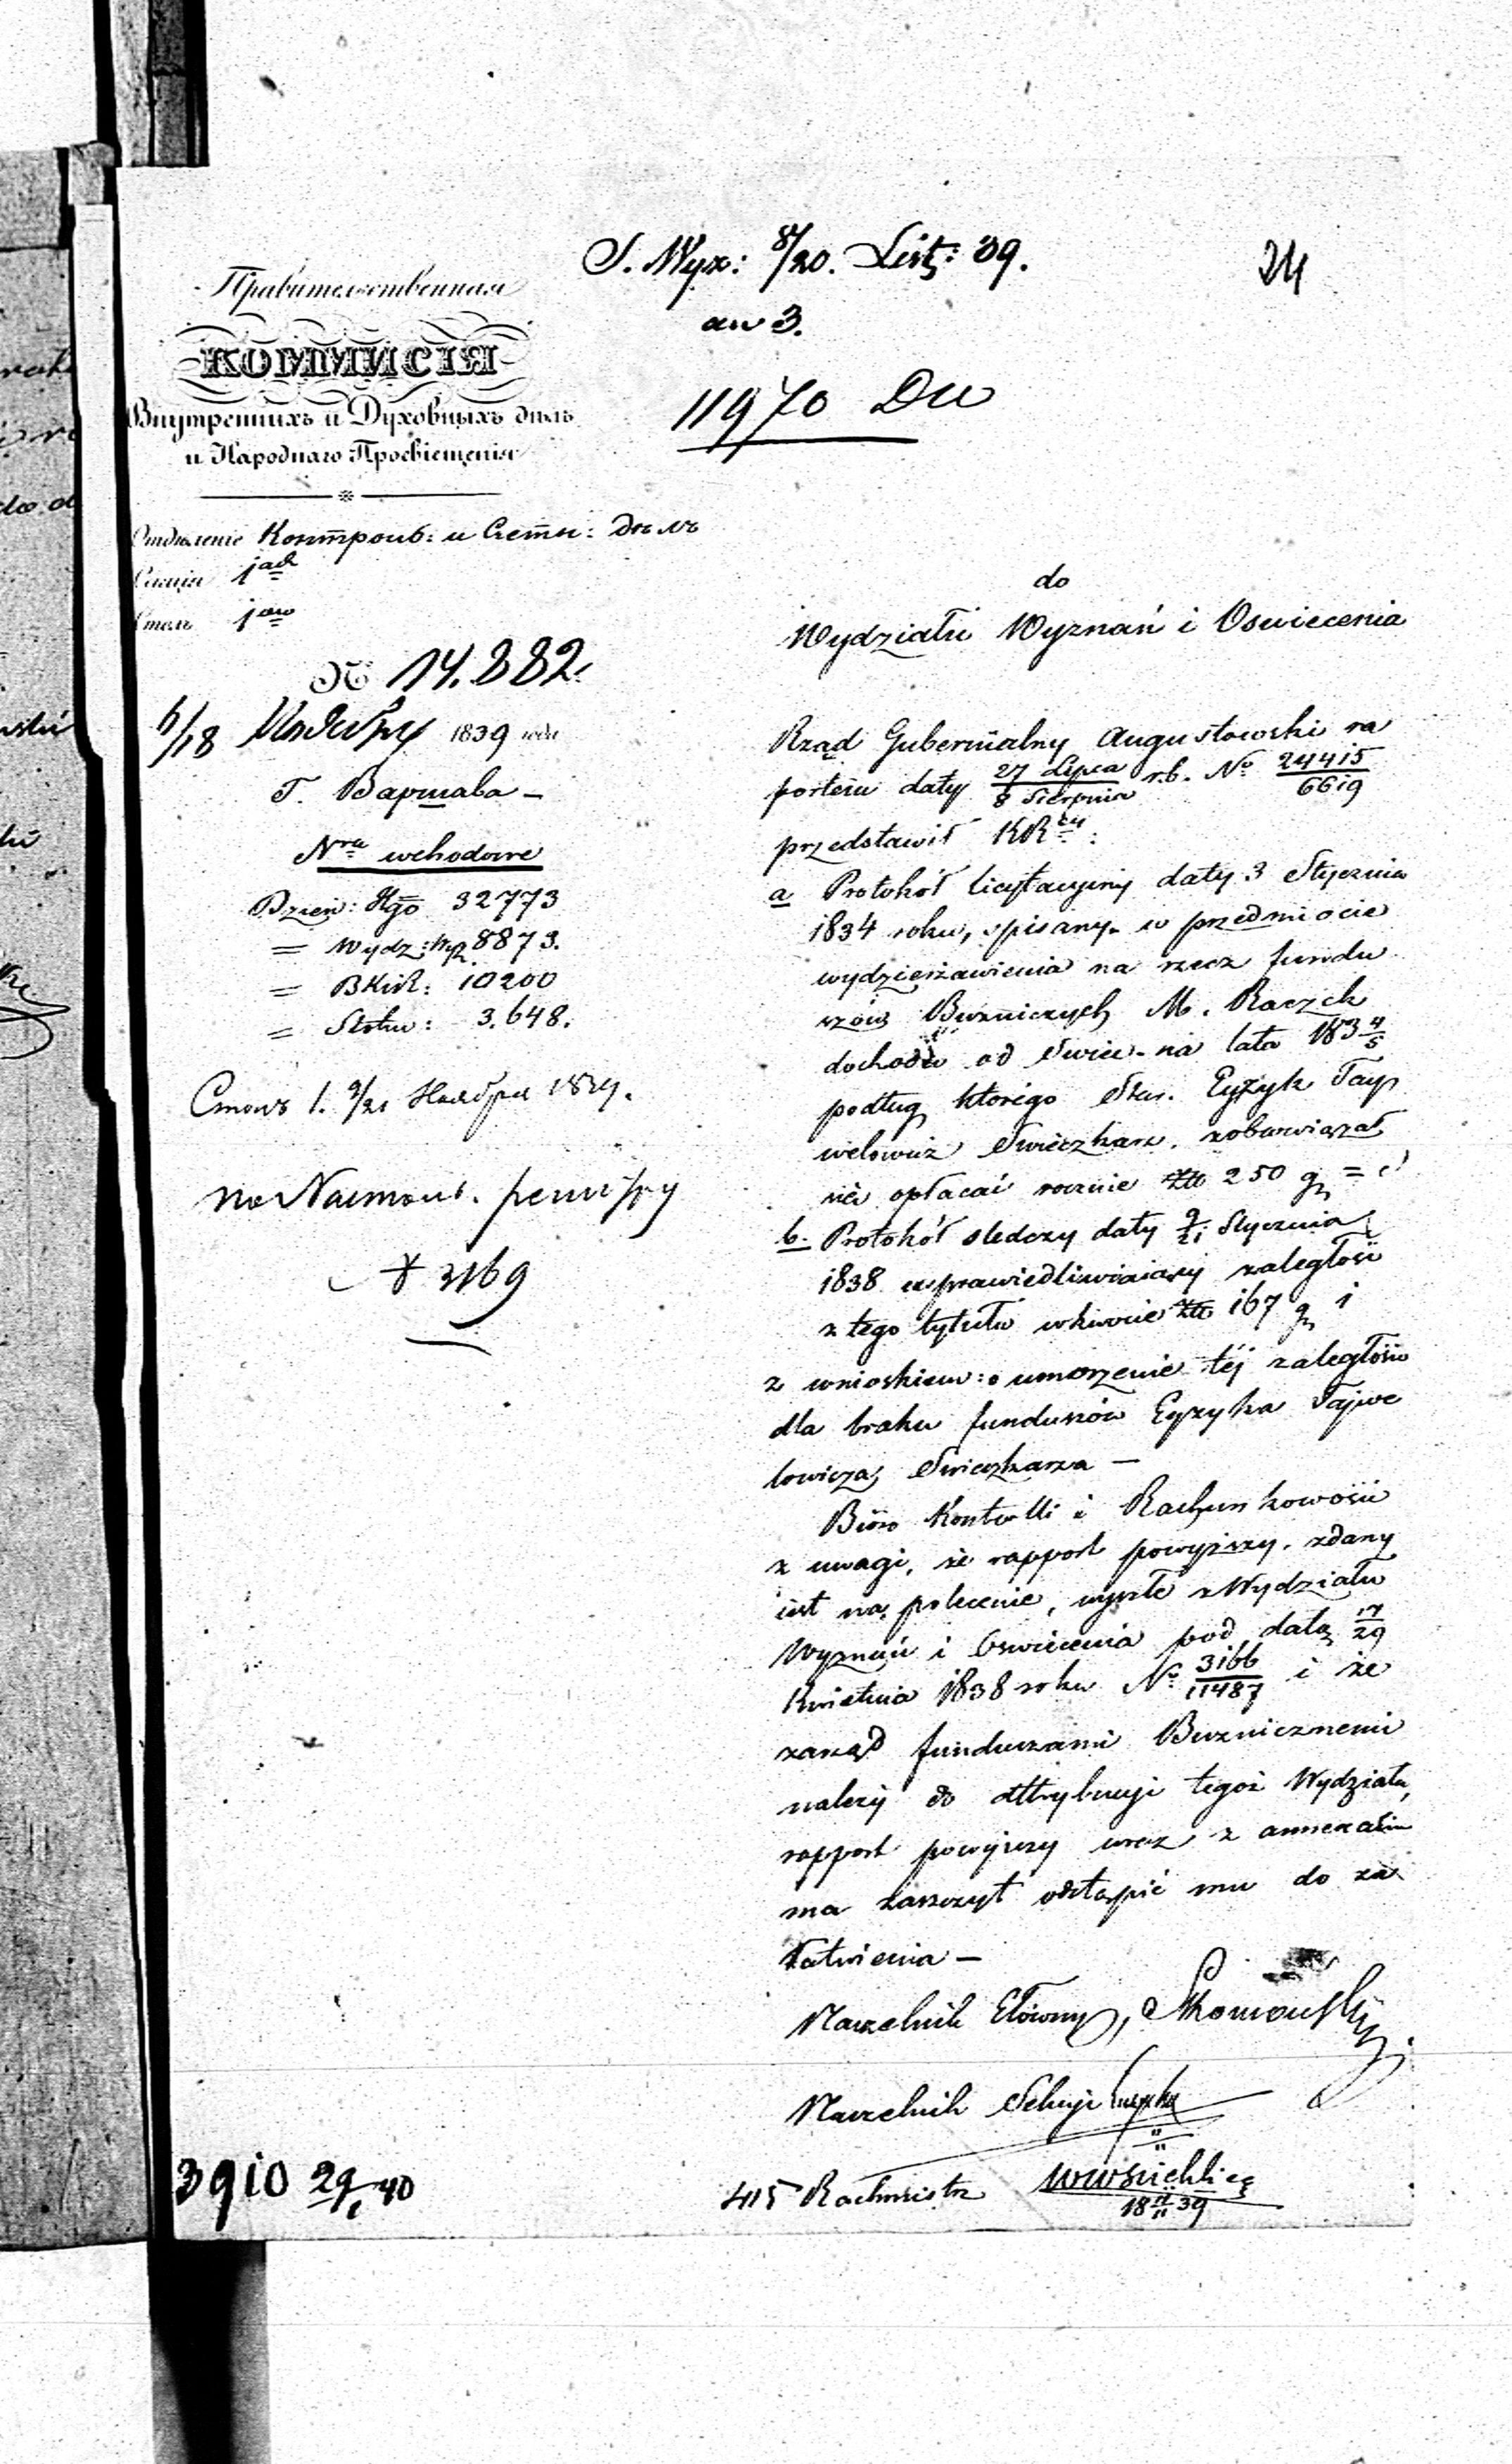 S. Wyz: 8/20. List: 39.
24
an 3.
11970 Du
Правительственная
КОММИСІЯ
Внутреннихъ и Духовныхъ дѣлъ
и Народнаго Просвѣщенія
Отдѣленіе Контроль: и Счетн: дѣлъ
Секція 1ая
Столъ 1ый
№ 14.882.
6/18 Ноября 1839 года
Г. Варшава –
Nra wchodowe
Dzien: Hgo 32773
= Wydz: Wyz 8873.
= BKiR: 10200
= Stołu: 3.648.
Столъ 1. 9/21 Ноября 1839.
3169
do
Wydziału Wyznań i Oswiecenia
Rząd Gubernialny Augustowski ra
portem daty 27 Lipca / 8 Sierpnia r.b. No 24415/6619
przedstawił KRty:
a Protokół licytacyiny daty 3 Stycznia
1834 roku, spisany w przedmiocie
wydzierżawienia na rzecz fundu
szów Bużniczych M. Raczek
dochodu od Swiec na lata 183 4/5
podług którego Star. Eyzyk Tay
welowicz Swieczkarz zobowiązał
się opłacać rocznie Złt 250 g =
b. Protokół sledczy daty 9/21 Stycznia
1838 usprawiedliwiaiący zaległość
z tego tytułu w kwocie Złt 167 g 1
z wnioskiem: o umorzenie téj zaległości
dla braku funduszów Eyzyka Tajwe
lowicza Swieczkarza –
Bióro Kontrolli i Rachunkowości
z uwagi, że rapport powyższy, zdany
iest na polecenie, wyszłe z Wydziału
Wyznań i Oswiecenia pod datą 17/29
Kwietnia 1838 roku No 3166/11487 i że
zarząd funduszami Bużnicznemi
należy do attrybucyi tegoż Wydziału,
rapport powyższy wraz z annexami
ma zaszczyt odstąpić mu do za
łatwienia –
Naczelnik Główny,
Naczelnik Sekcyi
415 Rachmistrz
18 11/11 39
3910 29/1 40